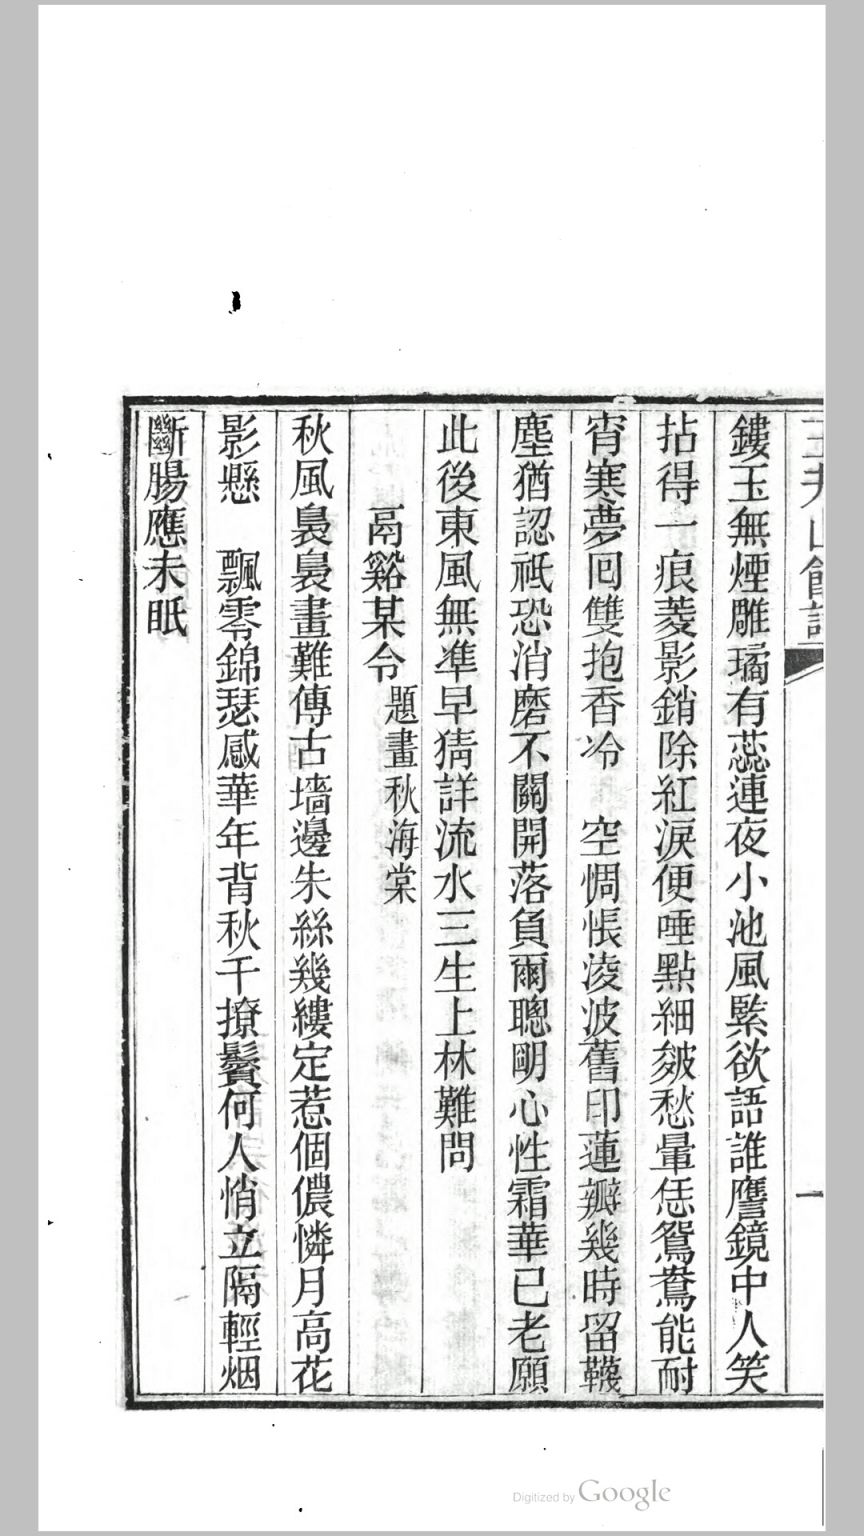 鏤玉無煙雕璚有蕊連夜小池風緊欲語誰譍鏡中人笑
拈得一痕菱影銷除紅淚便唾點細皴愁暈恁鴛鴦能耐
宵寒夢囘雙抱香冷　空惆悵凌波舊印蓮瓣幾時留韈
塵猶認祗恐消磨不關開落負爾聰明心性霜華已老願
此後東風無準早猜詳流水三生上林難問
鬲谿某令題畫秋海棠
秋風裊裊畫難傳古墻邊朱絲幾縷定惹個儂憐月高花
影懸　飄零錦瑟感華年背秋千撩鬢何人悄立隔輕烟
斷腸應未眠
Digitized by Google